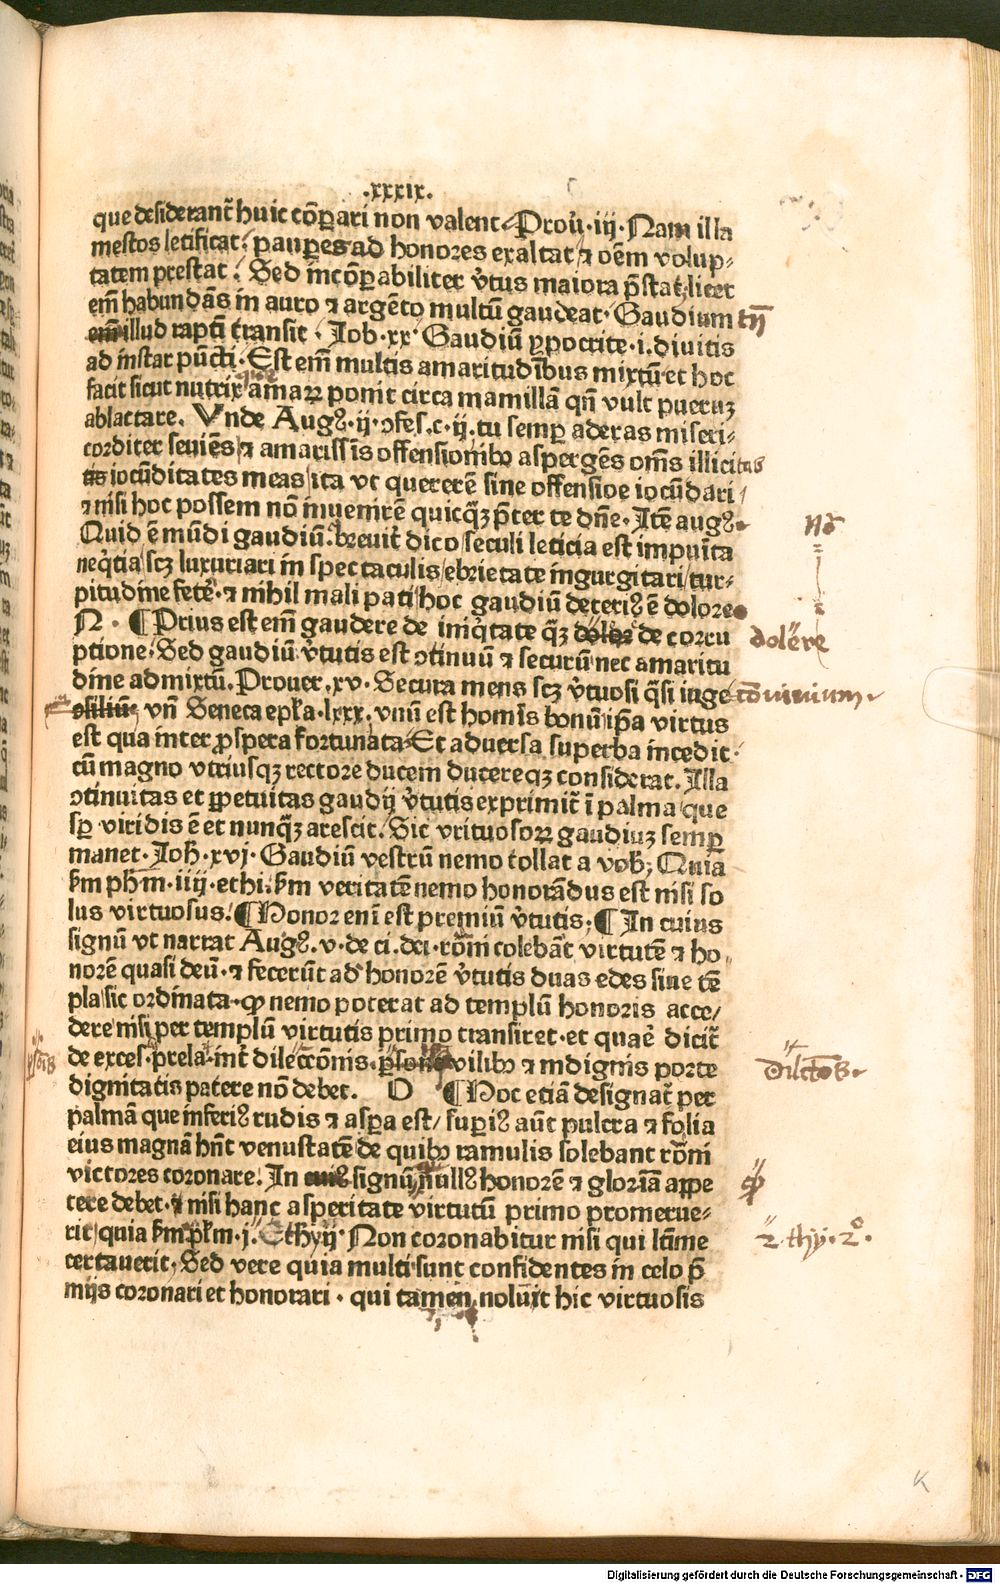 .xxxix.
que desiderant̃ huic cōꝑari non valent Prou̇. iij. Nam illa
mestos letificat. pauꝑes ad honores exaltat ⁊ oēm volup⸗
tatem prestat. Sed incōꝑabiliter v̇tus maiora p̄stat licet
em̄ habundās in auro ⁊ argēto multū gaudeat. Gaudium tn̄
em̄ illud raptī transit. Iob. xx. Gaudiū ypocrite. i. diuitis
ad instar pūcti. Est em̄ multis amaritudībus mixtū et hoc
facit sicut nutrix que amaꝝ ponit circa mamillā qn̄ vult pueruꝫ
ablactare. Vnde Augꝰ. ij. ꝯfes. c. ij. tu semꝑ aderas miseri⸗
corditer seuiēs ⁊ amarissīs offensionibꝰ aspergēs om̄s illicitas
tis iocūditates meas ita vt quererē sine offensioe iocūdari
⁊ nisi hoc possem nō inuenirē quicq̄ꝫ p̄ter te dn̄e. Itē augꝰ.
Quid ē mūdi gaudiū. breuit̃ dico seculi leticia est impuīta
neq̇tia scꝫ luxuriari in spectaculis ebrietate ingurgitari tur⸗
pitudine fetē. ⁊ nihil mali pati hoc gaudiū deteriꝰ ē dolore
N. ¶ Prius est em̄ gaudere de iniq̇tate q̄ꝫ dolor de corru dolēre
ptione. Sed gaudiū v̇tutis est ꝯtinuū ⁊ securū nec amaritu
dine admixtū. Prouer. xv. Secura mens scꝫ v̇tuosi q̄si iuge cōniuium.
ꝯsiliū vn̄ Seneca epl̄a. lxxx. vnū est homīs bonū ip̄a virtus
est qua inter ꝓspera fortunata Et aduersa superba incedit.
cū magno vtriusqꝫ rectore ducem ducereqꝫ considerat. Illa
ꝯtinuitas et ꝑpetuitas gaudij v̇tutis exprimit̃ ī palma que
sꝑ viridis ē et nunq̄ꝫ arescit. Sic vrituosoꝝ gaudiuꝫ semꝑ
manet. Ioh̄. xvj. Gaudiū vestrū nemo tollat a vob̄; Quia
km̄ ph̄m. iiij. ethi. km̄ veritatē nemo honorādus est nisi so
lus virtuosus. ¶ Honor enī est premiū v̇tutis; ¶ In cuius
signū vt narrat Augꝰ. v. de ci. dei. rōni colebāt virtutē ⁊ ho⸗
norē quasi deū. ⁊ fecerūt ad honorē v̇tutis duas edes siue tē
pla sic ordinata. ꝙ nemo poterat ad templū honoris acce/
dere nisi per templū virtutis primo transiret. et quaē dicit̃
de exces. prela. int̃ dilectōnis. ꝑsone vilibꝰ ⁊ indignis porte dilct̄os.
dignitatis patere nō debet. O ¶ Hoc etiā designat̃ per
palmā que inferiꝰ rudis ⁊ asꝑa est / suꝑiꝰ aūt pulcra ⁊ folia
eius magnā hn̄t venustatē de quibꝰ ramulis solebant rōni
victores coronare. In cuiꝰ signū nullꝰ honorē ⁊ gloriā appe
tere debet. ⁊ nisi hanc asperitate virtutū primo promerue⸗
rit quia km̄ pl̄m. j. Ethyij Non coronabitur nisi qui ltīme 2. thy. 2.
certauerit. Sed vere quia multi sunt confidentes in celo p̄
mijs coronari et honorari. qui tamen nolūit hic virtuosis
K
Digitalisierung gefördert durch die Deutsche Forschungsgemeinschaft - DFG